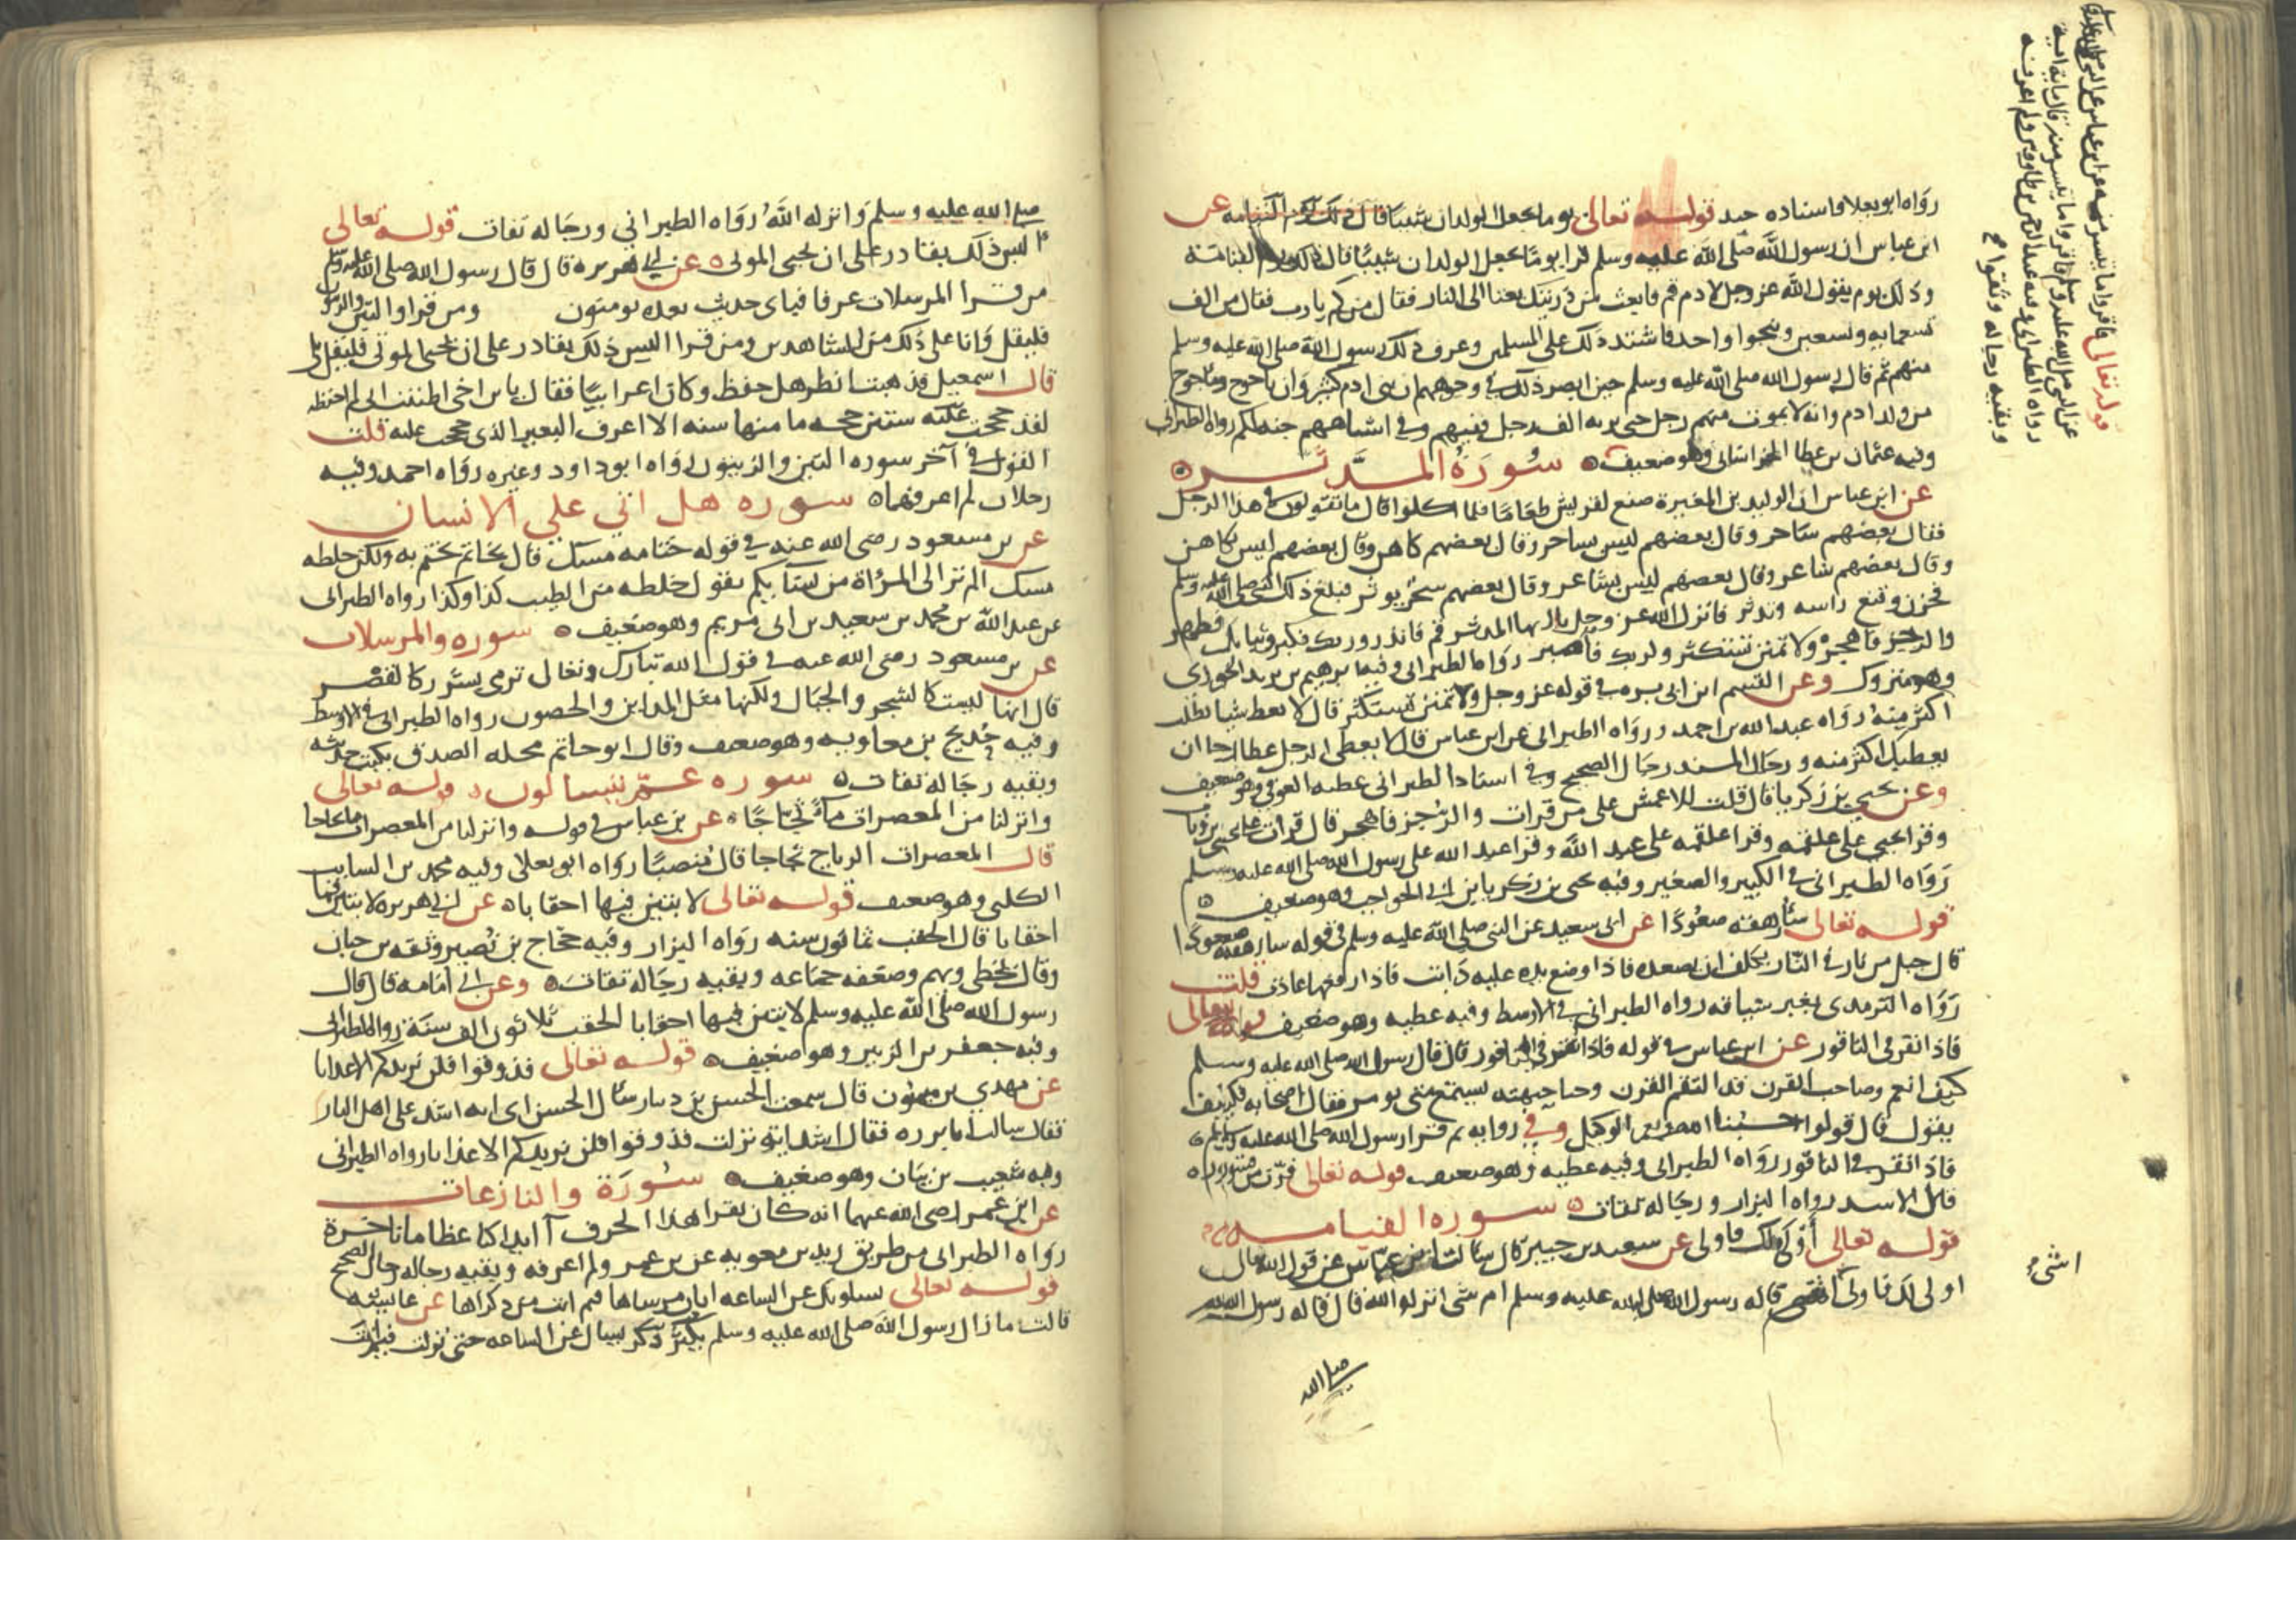 رواه ابو يعلا واسناده جيد قوله تعالى يوما يجعل الولدان شيبا قال ذلك يوم القيامة عن
ابن عباس ان رسول الله صلى الله عليه وسلم قرا يوما يجعل الولدان شيبا قال ذلك يوم القيامة
وذلك يوم يقول الله عز وجل لادم قم فابعث من ذريتك بعثا الى النار فقال من كم يا رب فقال من الف
تسعمايه وتسعين وينجوا واحد فاشتد ذلك على المسلمين وعرف ذلك رسول الله صلى الله عليه وسلم
منهم ثم قال رسول الله صلى الله عليه وسلم حين ابصر ذلك في وجوههم ان بنى ادم كثير وان ياجوج وماجوج
من ولد ادم وانه لا يموت منهم رجل حتى يرثه الف رجل ففيهم وفي اشباههم جنه لكم رواه الطبراني
وفيه عثمان بن عطا الخراسانى وهو ضعيف سورة المدثر
عن ابن عباس ان الوليد بن المغيرة صنع لقريش طعاما فلما اكلوا قال ما تقولون في هذا الرجل
فقال بعضهم ساحر وقال بعضهم ليس بساحر وقال بعضهم كاهن وقال بعضهم ليس بكاهن
وقال بعضهم شاعر وقال بعضهم ليس بشاعر وقال بعضهم سحر يوثر فبلغ ذلك النبي صلى الله عليه وسلم
فحزن وقنع راسه وتدثر فانزل الله عز وجل يا ايها المدثر قم فانذر وربك فكبر وثيابك فطهر
والرجز فاهجر ولا تمنن تستكثر ولربك فاصبر رواه الطبراني وفيه ابرهيم بن يزيد الخوزى
وهو متروك وعن القسم ابن ابى بزه في قوله عز وجل ولا تمنن تستكثر قال لا تعط شيا تطلب
اكثر منه رواه عبد الله بن احمد ورواه الطبرانى عن ابن عباس قال لا يعطى الرجل عطا رجا ان
يعطيك اكثر منه ورجال المسند رجال الصحيح وفي اسناد الطبرانى عطيه العوفي وهو ضعيف
وعن يحيى بن زكريا قال قلت للاعمش على من قرات والرجز فاهجر قال قرات على يحيى بن وثاب
وقرا يحيى على علقمه وقرا علقمه على عبد الله وقرا عبد الله على رسول الله صلى الله عليه وسلم
رواه الطبرانى في الكبير والصغير وفيه يحيى بن زكريا بن ابي الحواجب وهو ضعيف
قوله تعالى سارهقه صعودا عن ابى سعيد عن النبى صلى الله عليه وسلم في قوله سارهقه صعودا
قال جبل من نار في النار يكلف ان يصعده فاذا وضع يده عليه ذابت فاذا رفعها عادت قلت
رواه الترمذى بغير سياقه رواه الطبرانى في الاوسط وفيه عطيه وهو ضعيف قوله تعالى
فاذا نقر في الناقور عن ابن عباس في قوله فاذا نقر في الناقور قال قال رسول الله صلى الله عليه وسلم
كيف انعم وصاحب القرن قد التقم القرن وحنا جبهته يستمع متى يومر فقال اصحابه فكيف
يقول قال قولوا حسبنا الله ونعم الوكيل وفي رواية ثم قرا رسول الله صلى الله عليه وسلم
فاذا نقر في الناقور رواه الطبرانى وفيه عطيه وهو ضعيف قوله تعالى فرت من قسورة
قال الاسد رواه البزار ورجاله ثقات سورة القيامه
قوله تعالى أولى لك فاولى عن سعيد بن جبير قال سالت ابن عباس عن قول الله تعالى
اولى لك فاولى قاله رسول الله صلى الله عليه وسلم ام شى انزله الله قال قاله رسول الله
صلى الله
اشئ
قوله تعالى فاقروا ما تيسر منه عن ابن عباس
عن النبى صلى الله عليه وسلم فاقروا ما تيسر منه قال ماية اية
رواه الطبرانى وفيه عبد الرحمن بن طاووس ولم اعرفه
وبقيه رجاله وثقوا صح
صلى الله عليه وسلم وانزله الله رواه الطبراني ورجاله ثقات قوله تعالى
اليس ذلك بقادر على ان يحيى الموتى عن ابي هريره قال قال رسول الله صلى الله عليه وسلم
من قرا المرسلات عرفا فباى حديث بعده يومنون ومن قرا والتين والزيتون
فليقل وانا على ذلك من الشاهدين ومن قرا اليس ذلك بقادر على ان يحيى الموتى فليقل بلى
قال اسمعيل فذهبت انظر هل حفظ وكان اعرابيا فقال يابن اخى اظننت انى لم احفظه
لقد حججت ستين حجه ما منها سنه الا اعرف البعير الذى حججت عليه قلت
القول في آخر سوره التين والزيتون رواه ابو داود وغيره رواه احمد وفيه
رجلان لم اعرفهما سوره هل اتى على الانسان
عن بن مسعود رضى الله عنه في قوله ختامه مسك قال بخاتم يختم به ولكن خلطه
مسك الم تر الى المرأة من نسايكم تقول خلطه من الطيب كذا وكذا رواه الطبرانى
عن عبد الله بن محمد بن سعيد بن ابى مريم وهو ضعيف سوره والمرسلات
عن بن مسعود رضى الله عنه في قول الله تبارك وتعالى ترمى بشرر كالقصر
قال انها ليست كالشجر والجبال ولكنها مثل المداين والحصون رواه الطبرانى في الاوسط
وفيه حديج بن معاويه وهو ضعيف وقال ابو حاتم محله الصدق يكتب حديثه
وبقيه رجاله ثقات سوره عم يتسا لون قوله تعالى
وانزلنا من المعصرات ماء ثجاجا عن بن عباس في قوله وانزلنا من المعصرات ماء ثجاجا
قال المعصرات الرياح ثجاجا قال منصبا رواه ابو يعلا وفيه محمد بن السايب
الكلبى وهو ضعيف قوله تعالى لابثين فيها احقابا عن ابي هريره لابثين فيها
احقابا قال الحقب ثمانون سنه رواه البزار وفيه حجاج بن نصير وثقه بن حبان
وقال يخطى ويهم وضعفه جماعه وبقيه رجاله ثقات وعن ابي امامه قال قال
رسول الله صلى الله عليه وسلم لابثين فيها احقابا الحقب ثلاثون الف سنة رواه الطبرانى
وفيه جعفر بن الزبير وهو ضعيف قوله تعالى فذوقوا فلن نزيدكم الا عذابا
عن مهدي بن ميمون قال سمعت الحسن بن دينار سال الحسن اى ايه اشد على اهل النار
فقال سالت ابا برزه فقال اشد ايه نزلت فذوقوا فلن نزيدكم الا عذابا رواه الطبرانى
وفيه شعيب بن بيان وهو ضعيف سورة والنازعات
عن ابن عمر رضى الله عنهما انه كان يقرا هذا الحرف آ ايذا كنا عظاما ناخرة
رواه الطبرانى من طريق زيد بن معويه عن بن عمر ولم اعرفه وبقيه رجاله رجال الصحيح
قوله تعالى يسلونك عن الساعه ايان مرساها فيم انت من ذكراها عن عايشه
قالت ما زال رسول الله صلى الله عليه وسلم يكثر ذكر يسال عن الساعه حتى نزلت فيم انت